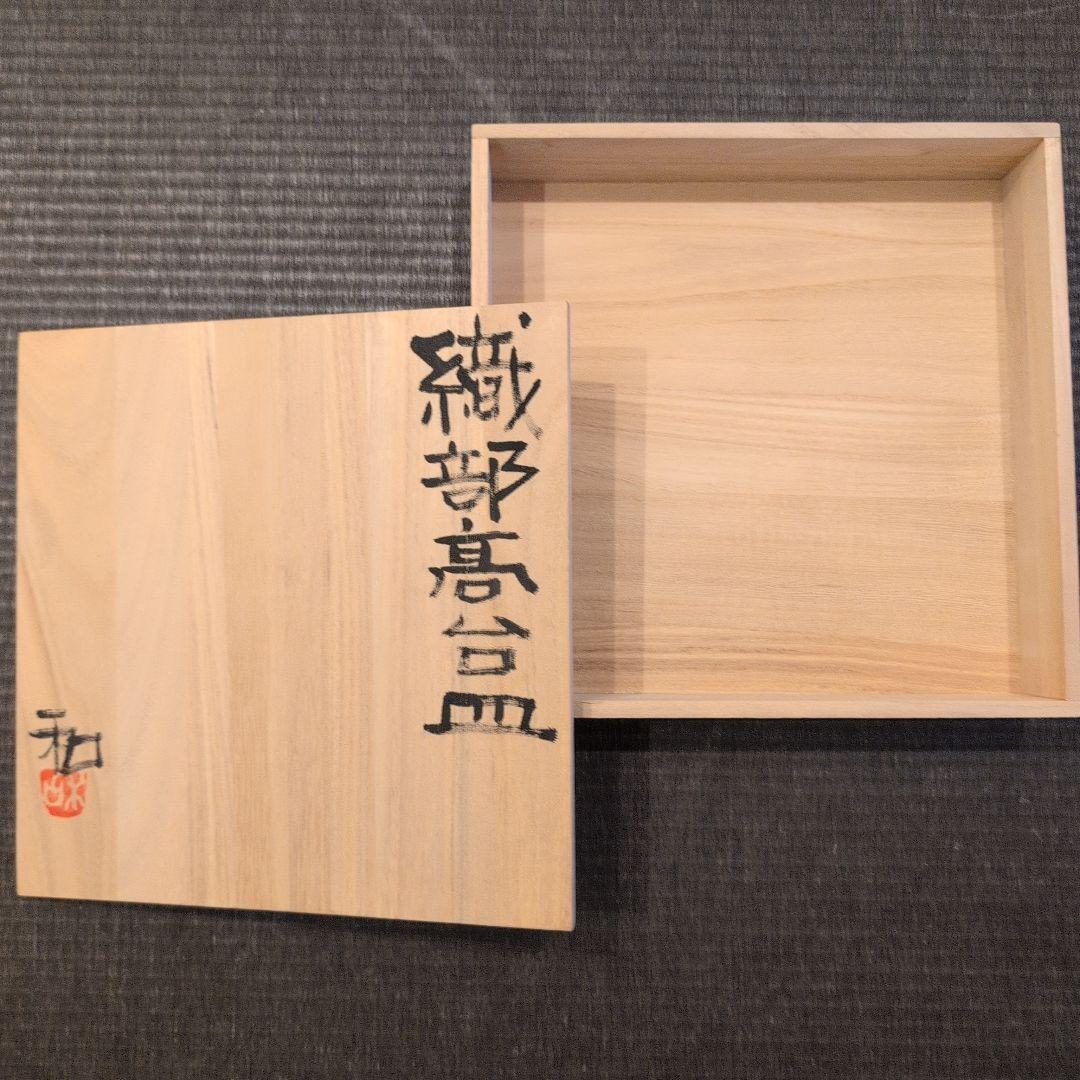 織部高台皿
和